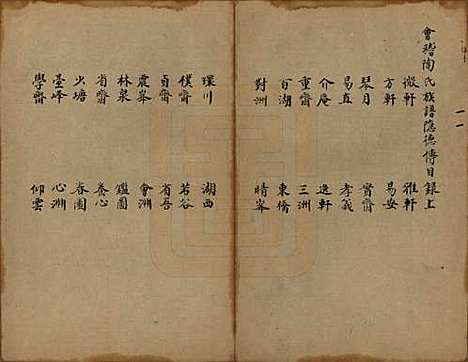 會稽陶氏族譜隱德傳目錄上
微軒 雅軒
方軒 易安
琴月 實齋
易直 孝義
介庵 逸軒
重齋 三洲
百湖 東橋
對洲 晴峯
環川 湖西
樸齋 若谷
南齋 省吾
震峯 會洲
林泉 鑑圃
省齋 養心
少塘 春圃
臺峰 心洲
學齋 仰雲